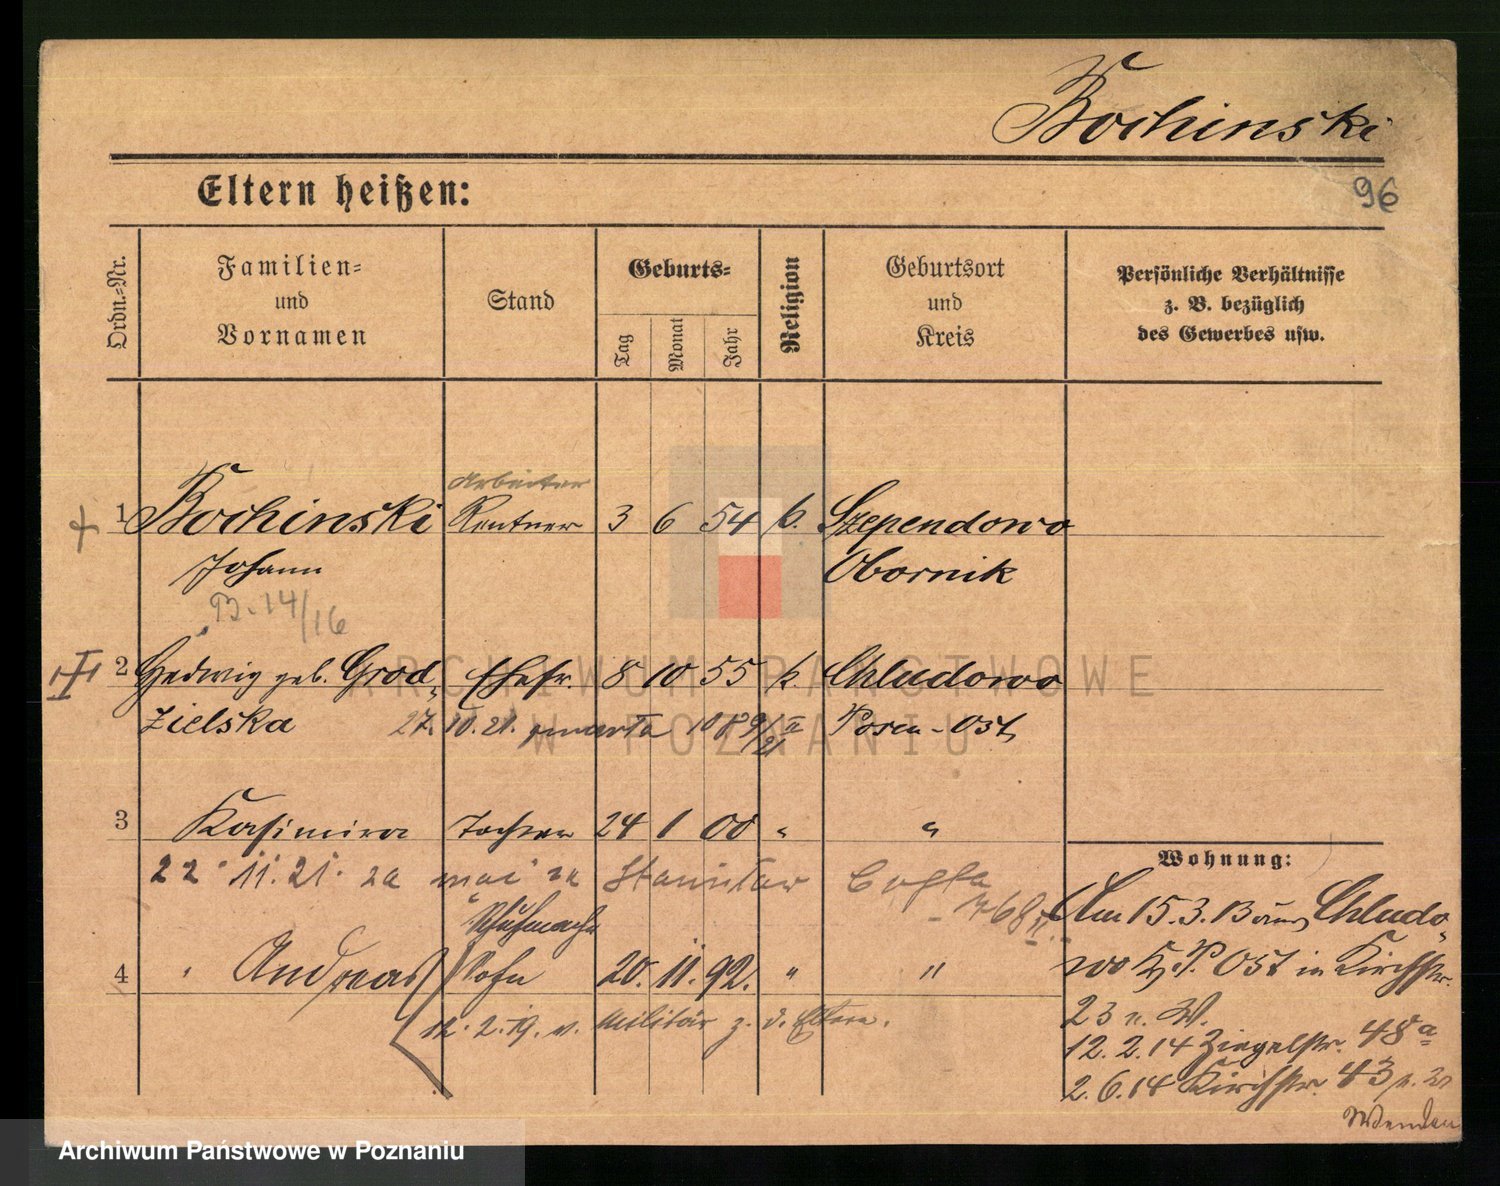 Bochinski
Eltern heißen:
96
Ordn.-Nr.
Familien- und Vornamen
Stand
Geburts-
Tag
Monat
Jahr
Religion
Geburtsort und Kreis
Persönliche Verhältnisse
z. B. bezüglich
des Gewerbes usw.
Arbeiter
1 Bochinski Rentner 3 6 54 k. Szependowo
Johann Obornik
B. 14/16
2 Hedwig geb. Grod- Ehefr. 8 10 55 k. Chludowo
zielska 27. 10. 21. umarła Posen-Ost
3 Kasimira Tochter 24 1 00 " "
22. 11. 21. za Stanisław
Wohnung:
Schuhmacher
Am 15.3.13 aus Chludo-
4 Andreas Sohn 20. 11. 92. " "
wo K. P. Ost in Kirchstr.
12. 2. 19. v. Militär z. d. Eltern.
23 n. W.
12. 2. 14 Ziegelstr. 48a
2. 6. 14 Kirchstr. 43
Wenden
ARCHIWUM PAŃSTWOWE
W POZNANIU
Archiwum Państwowe w Poznaniu